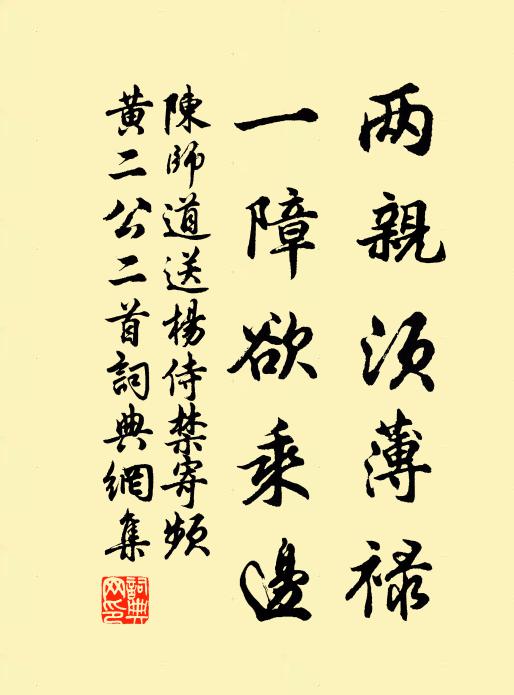 两親须薄禄
一障欲乘邊
陳師道送楊侍禁寄频
黄二公二首詞典網集
詞典
网印